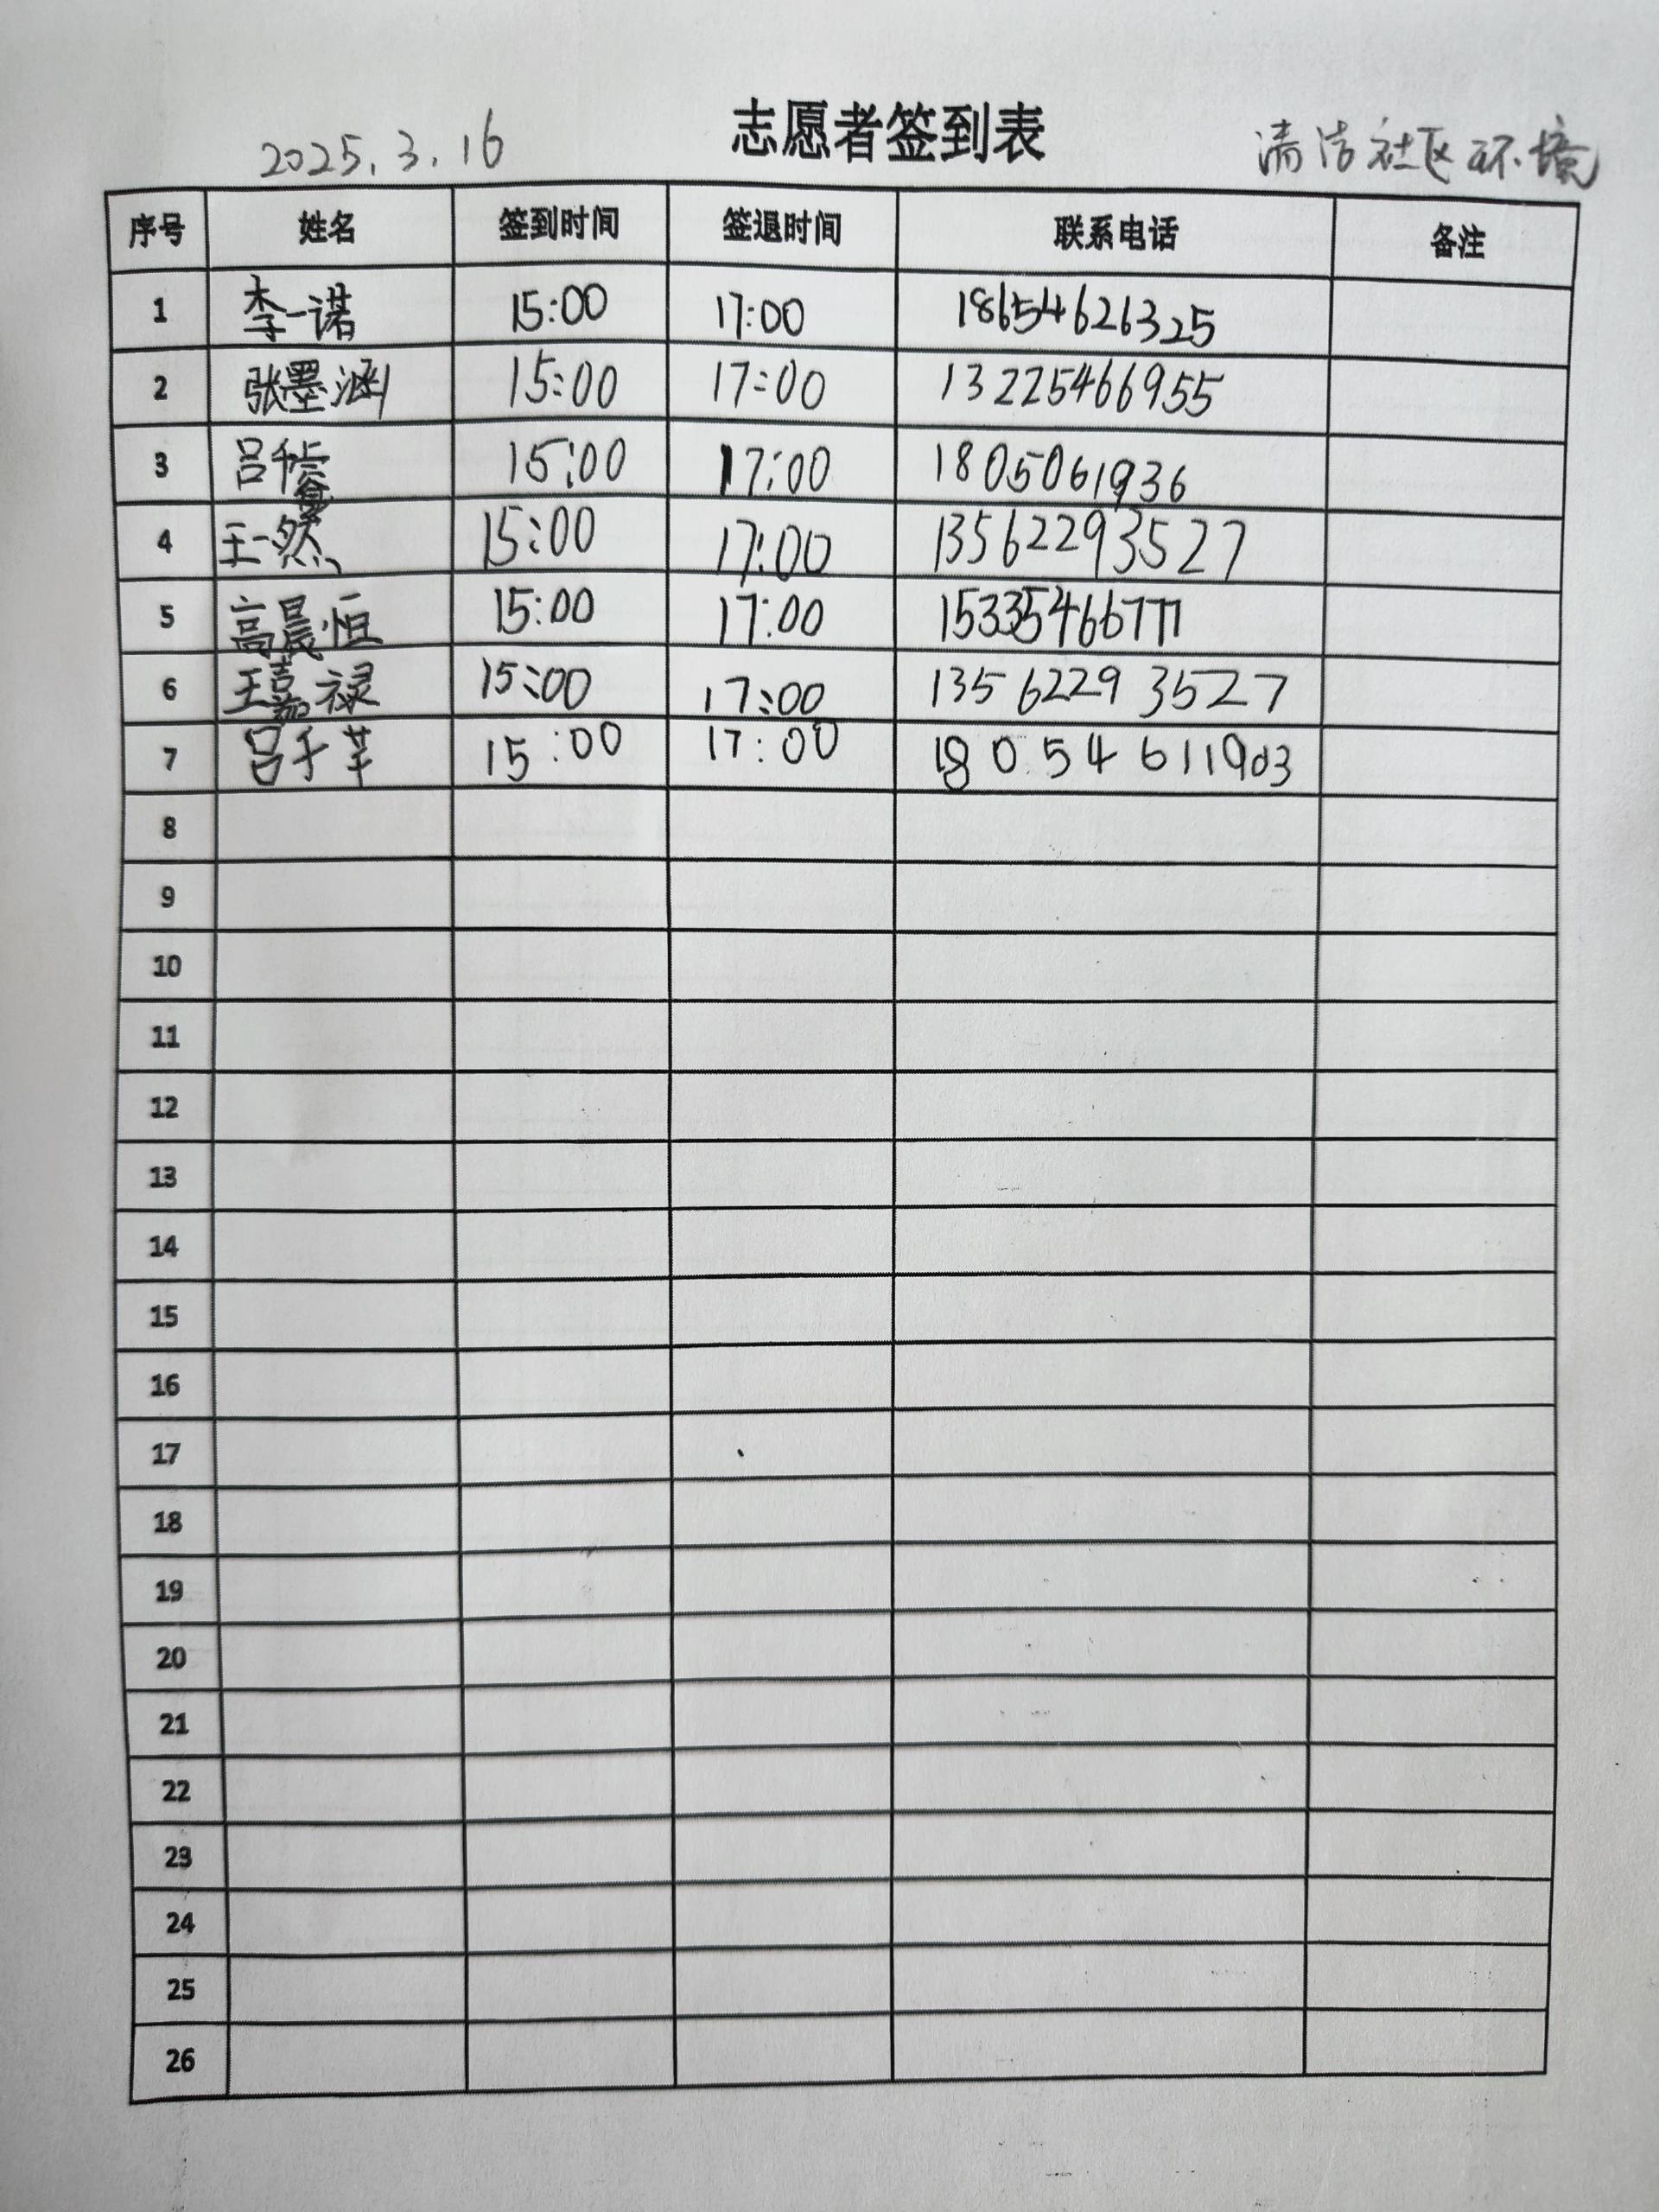 2025.3.16 志愿者签到表 清洁社区环境
序号 姓名 签到时间 签退时间 联系电话 备注
1 李一诺 15:00 17:00 18654626325
2 张墨涵 15:00 17:00 13225466955
3 吕 15:00 17:00 1805061936
4 王一然 15:00 17:00 13562293527
5 高晨恒 15:00 17:00 15335466777
6 王嘉禄 15:00 17:00 13562293527
7 吕千芊 15:00 17:00 18054611903
8
9
10
11
12
13
14
15
16
17
18
19
20
21
22
23
24
25
26